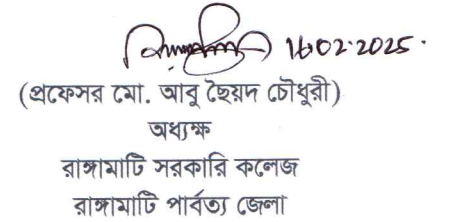 16.02.2025.
(প্রফেসর মো. আবু ছৈয়দ চৌধুরী)
অধ্যক্ষ
রাঙ্গামাটি সরকারি কলেজ
রাঙ্গামাটি পার্বত্য জেলা